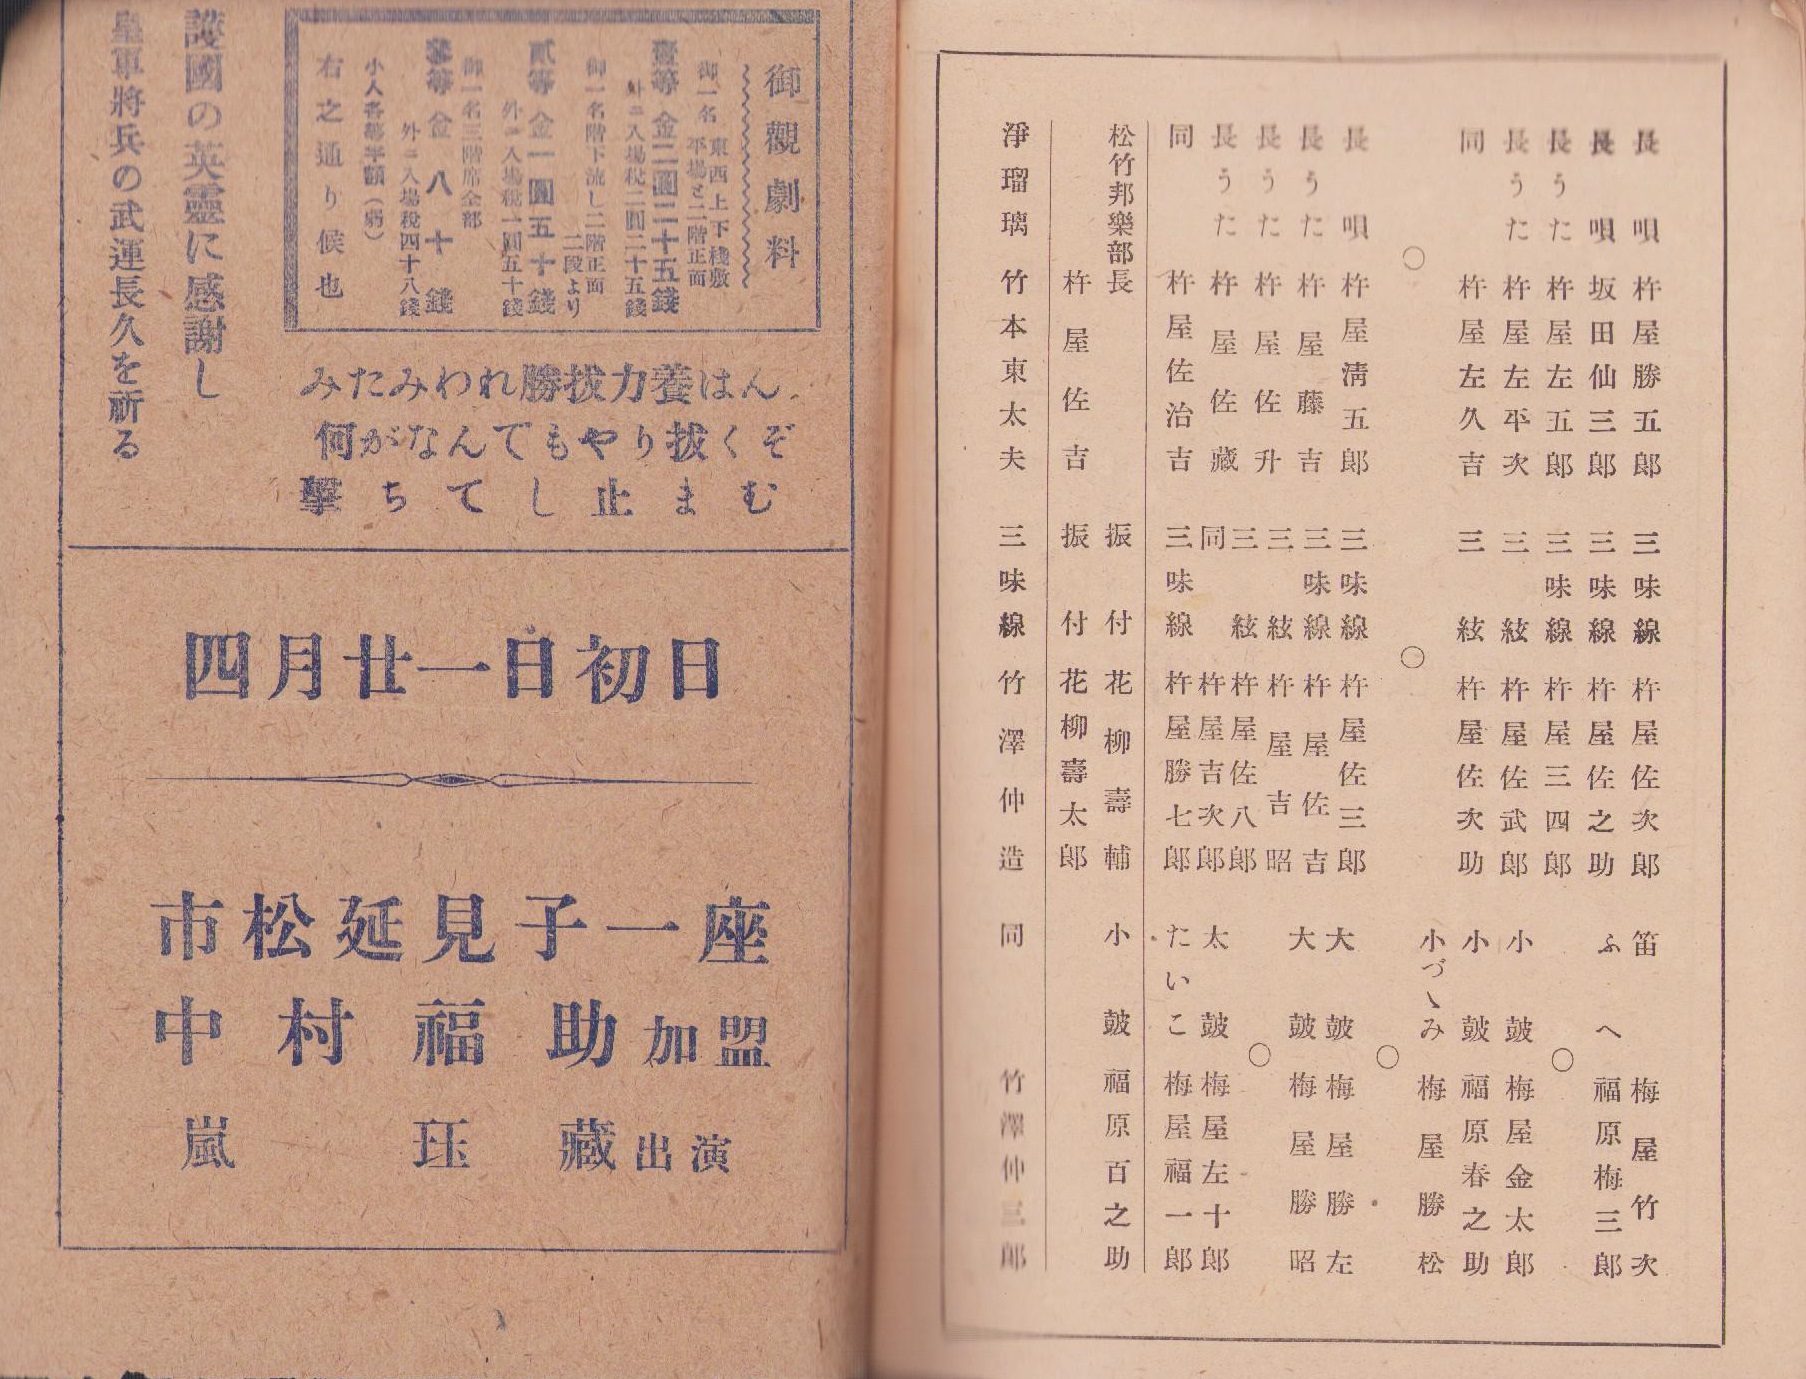 長唄 杵屋勝五郎
長唄 坂田仙三郎
長うた 杵屋左五郎
長うた 杵屋左平次
同 杵屋左久吉
○
長唄 杵屋淸五郎
長うた 杵屋藤吉
長うた 杵屋佐升
長うた 杵屋佐藏
同 杵屋佐治吉
三味線 杵屋佐次郎
三味線 杵屋佐之助
三味線 杵屋三四郎
三絃 杵屋佐武郎
三絃 杵屋佐次助
○
三味線 杵屋佐三郎
三味線 杵屋佐吉
三絃 杵屋吉昭
三絃 杵屋佐八郎
同 杵屋吉次郎
三味線 杵屋勝七郎
笛 梅屋竹次
ふへ 福原梅三郎
○
小皷 梅屋金太郎
小皷 福原春之助
小づゝみ 梅屋勝松
○
大皷 梅屋勝左
大皷 梅屋勝昭
○
太皷 梅屋左十郎
たいこ 梅屋福一郎
松竹邦樂部長 杵屋佐吉
振付 花柳壽輔
振付 花柳壽太郎
小皷 福原百之助
淨瑠璃 竹本東太夫
三味線 竹澤仲造
同 竹澤仲三郎
御觀劇料
御一名 東西上下棧敷
平場と二階正面
壹等 金二圓二十五錢
外ニ入場稅二圓二十五錢
御一名階下流し二階正面
二段より
貳等 金一圓五十錢
外ニ入場稅一圓五十錢
御一名三階席全部
參等 金八十錢
外ニ入場稅四十八錢
小人各等半額(弱)
右之通り候也
みたみわれ勝拔力養はん
何がなんでもやり拔くぞ
擊ちてし止まむ
護國の英靈に感謝し
皇軍將兵の武運長久を祈る
四月廿一日初日
市松延見子一座
中村福助加盟
嵐珏藏出演